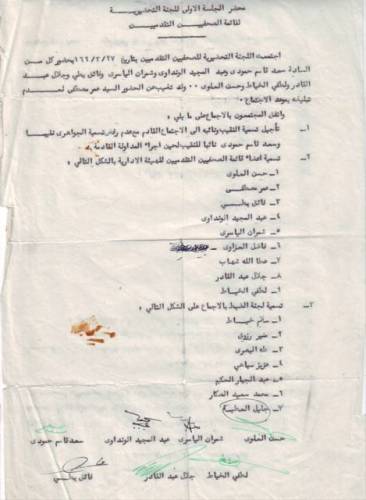 محضر الجلسة الاولى للجنة التحضيرية
لقائمة الصحفيين التقدميين
اجتمعت اللجنة التحضيرية للصحفيين التقدميين بتاريخ ٢٧/٢/ بحضور كل من
السادة سعد قاسم حمودي وعبد المجيد الونداوي وشمران الياسري وفائق بطي وجلال عبد
القادر ولطفي الخياط وحسن العلوي ٠٠ وقد تغيب عن الحضور السيد عمر مصطفى لعدم
تبليغه بموعد الاجتماع ٠
واتفق المجتمعون بالاجماع على ما يلي :
١ـ تأجيل تسمية النقيب ونائبه الى الاجتماع القادم مع عدم تسمية الجواهرى نقيبا
وسعد قاسم حمودى نائبا للنقيب لحين اجراء المداولة القادمة
٢ـ تسمية اعضاء قائمة الصحفيين التقدميين للهيئة الادارية بالشكل التالي :
١ـ حسن العلوى
٢ـ عمر مصطفى
٣ـ فائق بطي
٤ـ عبد المجيد الونداوى
٥ـ شمران الياسرى
٦ـ فاضل العزاوى
٧ـ عطا الله شهاب
٨ـ جلال عبد القادر
٩ـ لطفي الخياط
٣ـ تسمية لجنة الضبط بالاجماع على الشكل التالي :
١ـ سالم خياط
٢ـ منير رزوق
٣ـ طه البصرى
٤ـ عزيز سباهي
٥ـ عبد الجبار الحكيم
٦ـ محمد سعيد الصكار
٧ـ جليل العطية
حسن العلوى شمران الياسرى عبد المجيد الونداوى سعد قاسم حمودى
لطفي الخياط جلال عبد القادر فائق بطي